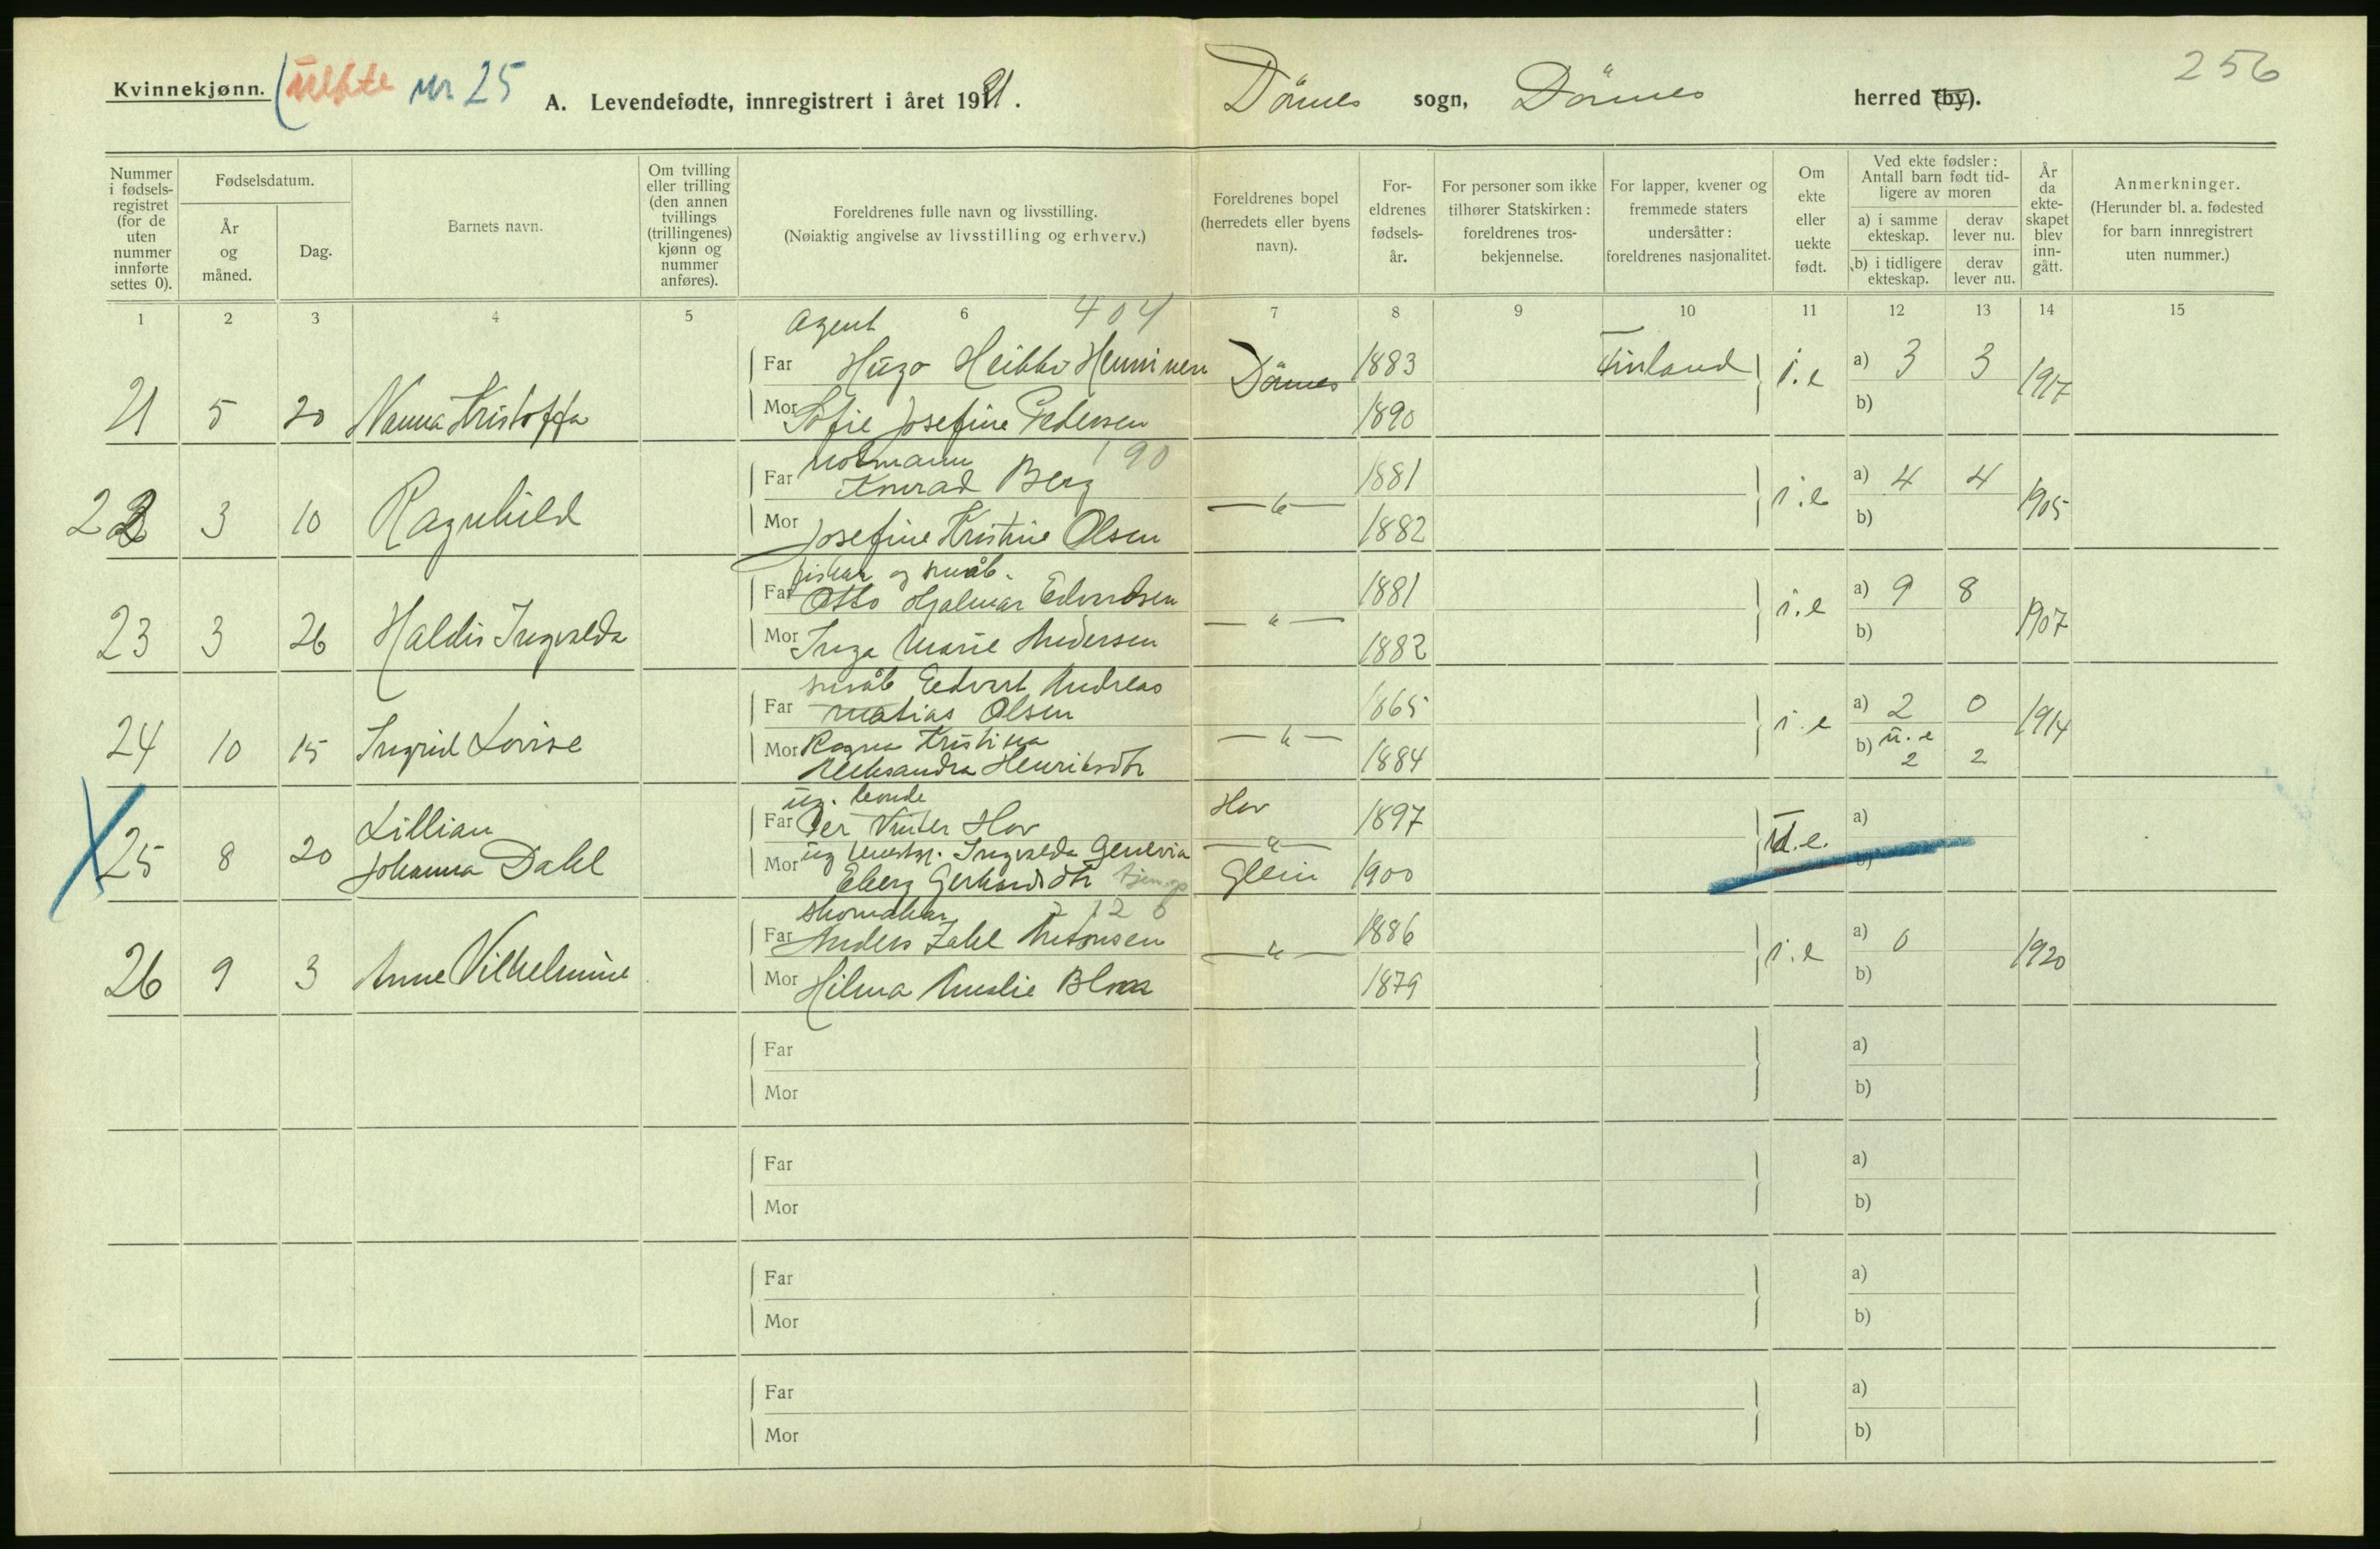 Kvinnekjønn. uekte nr 25
A. Levendefødte, innregistrert i året 1921.
Dönnes sogn, Dönnes herred (by).
256
Nummer i fødsels-registret (for de uten nummer innførte settes 0).
Fødselsdatum.
År og måned.
Dag.
Barnets navn.
Om tvilling eller trilling (den annen tvillings (trillingenes) kjønn og nummer anføres).
Foreldrenes fulle navn og livsstilling.
(Nøiaktig angivelse av livsstilling og erhverv.)
Foreldrenes bopel (herredets eller byens navn).
For-eldrenes fødsels-år.
For personer som ikke tilhører Statskirken: foreldrenes tros-bekjennelse.
For lapper, kvener og fremmede staters undersåtter: foreldrenes nasjonalitet.
Om ekte eller uekte født.
Ved ekte fødsler: Antall barn født tid-ligere av moren
a) i samme ekteskap.
derav lever nu.
b) i tidligere ekteskap.
derav lever nu.
År da ekte-skapet blev inn-gått.
Anmerkninger.
(Herunder bl. a. fødested for barn innregistrert uten nummer.)
1 2 3 4 5 6 7 8 9 10 11 12 13 14 15
Agent 404
Far Hugo Heikki Henninen Dönnes 1883 Finland i.e a) 3 3 1917
21 5 20 Nanna Kristoffa
Mor Sofie Josefine Pedersen 1890 b)
Notmann 190
Far Konrad Berg 1881 i.e a) 4 4 1905
22 3 10 Ragnhild — " —
Mor Josefine Kristine Olsen 1882 b)
fisker og småb.
Far Otto Hjalmar Edvardsen 1881 i.e a) 9 8 1907
23 3 26 Haldis Ingvalda — " —
Mor Inga Marie Andersen 1882 b)
småb Edvart Andreas
Far Matias Olsen 1865 i.e a) 2 0 1914
24 10 15 Ingrid Lovise — " —
Mor Ragna Kristina
Aleksandra Henriksdtr 1884 b) u.e 2 2
ug. bonde
Far Per Vinter Hov Hov 1897 U.e. a)
25 8 20 Lillian Johanna Dahl — " —
Mor ug Ingvalda Genevia
Eberg Gerhardsdtr Glein 1900 b)
skomaker 212 6
Far Anders Zahl Antonsen 1886 i.e a) 0 1920
26 9 3 Anne Vilhelmine — " —
Mor Hilma Amalie Blix 1879 b)
Far a)
Mor b)
Far a)
Mor b)
Far a)
Mor b)
Far a)
Mor b)